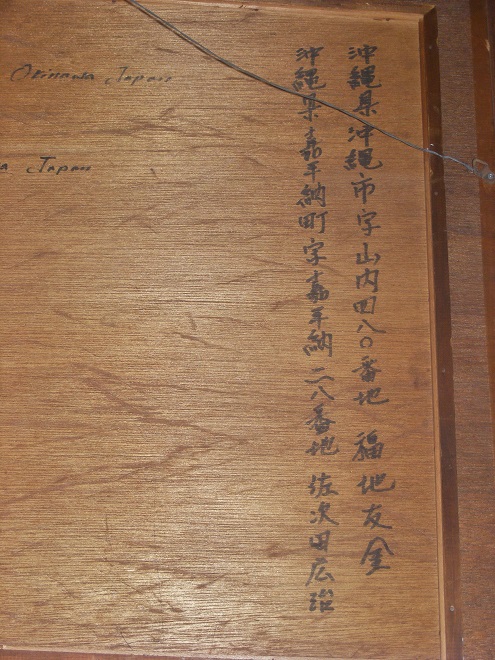 沖縄県沖縄市字山内四八〇番地 福地友金
沖縄県嘉手納町字嘉手納二八番地 佐次田広治
Okinawa Japan
a Japan